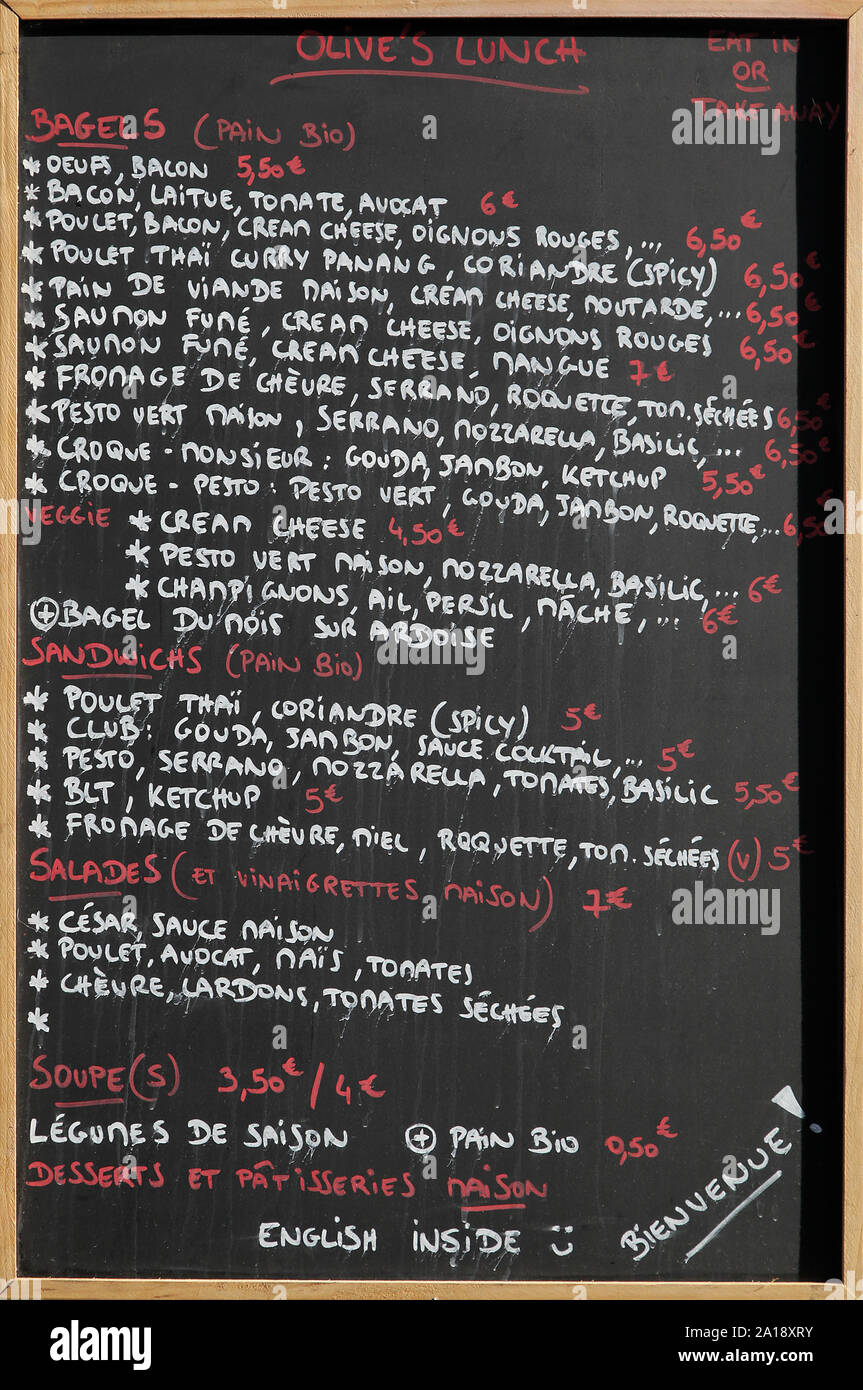 OLIVE'S LUNCH
EAT IN
OR
TAKE AWAY
BAGELS (PAIN BIO)
* OEUFS, BACON 5,50€
* BACON, LAITUE, TOMATE, AVOCAT 6€
* POULET, BACON, CREAM CHEESE, OIGNONS ROUGES, ... 6,50€
* POULET THAÏ CURRY PANANG, CORIANDRE (SPICY) 6,50€
* PAIN DE VIANDE MAISON, CREAM CHEESE, MOUTARDE, ... 6,50€
* SAUMON FUMÉ, CREAM CHEESE, OIGNONS ROUGES 6,50€
* SAUMON FUMÉ, CREAM CHEESE, MANGUE 7€
* FROMAGE DE CHÈVRE, SERRANO, ROQUETTE, TOM. SÉCHÉES 6,50€
* PESTO VERT MAISON, SERRANO, MOZZARELLA, BASILIC, ... 6,50€
* CROQUE-MONSIEUR : GOUDA, JAMBON, KETCHUP 5,50€
* CROQUE-PESTO : PESTO VERT, GOUDA, JAMBON, ROQUETTE, ... 6,50€
VEGGIE * CREAM CHEESE 4,50€
* PESTO VERT MAISON, MOZZARELLA, BASILIC, ... 6€
* CHAMPIGNONS, AIL, PERSIL, MÂCHE, ... 6€
⊕ BAGEL DU MOIS SUR ARDOISE
SANDWICHS (PAIN BIO)
* POULET THAÏ, CORIANDRE (SPICY) 5€
* CLUB : GOUDA, JAMBON, SAUCE COCKTAIL, ... 5€
* PESTO, SERRANO, MOZZARELLA, TOMATES, BASILIC 5,50€
* BLT, KETCHUP 5€
* FROMAGE DE CHÈVRE, MIEL, ROQUETTE, TOM. SÉCHÉES (V) 5€
SALADES (ET VINAIGRETTES MAISON) 7€
* CÉSAR, SAUCE MAISON
* POULET, AVOCAT, MAÏS, TOMATES
* CHÈVRE, LARDONS, TOMATES SÉCHÉES
*
SOUPE(S) 3,50€ / 4€
LÉGUMES DE SAISON ⊕ PAIN BIO 0,50€
DESSERTS ET PÂTISSERIES MAISON
ENGLISH INSIDE
BIENVENUE
alamy
Image ID: 2A18XRY
www.alamy.com